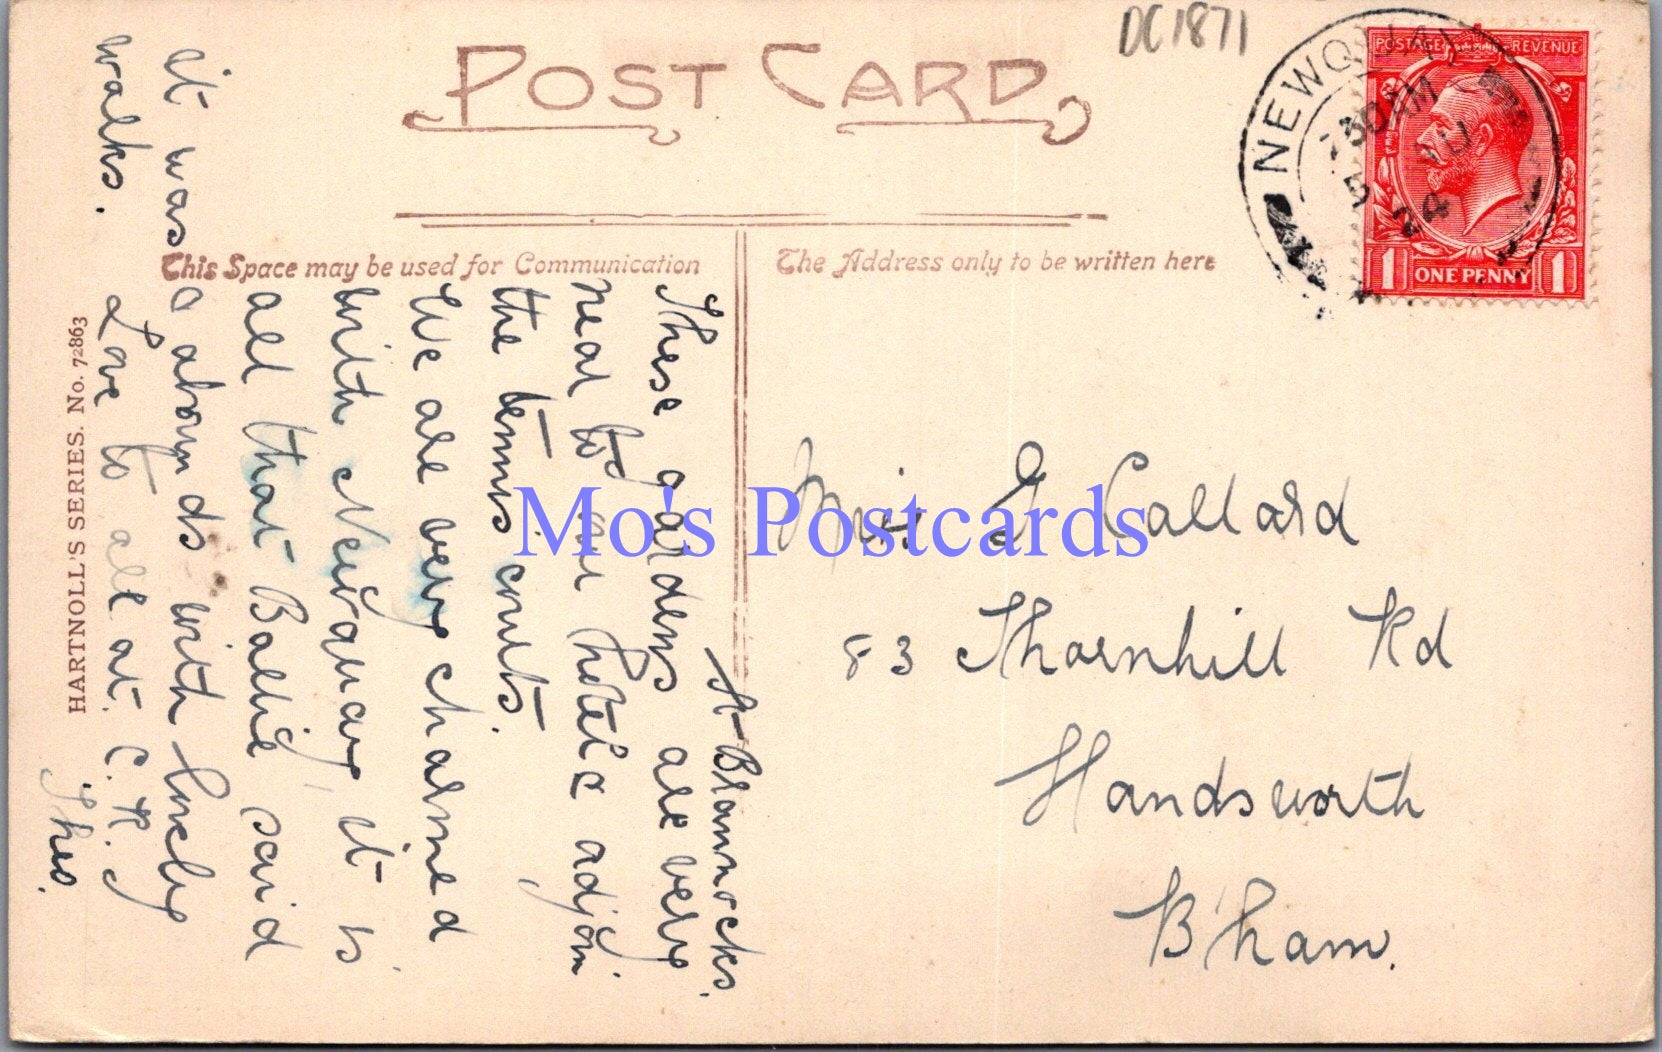 DC1871
POST CARD
NEWQUAY
7 30 AM
5 AU
24
POSTAGE REVENUE
1 ONE PENNY 1
This Space may be used for Communication
The Address only to be written here
HARTNOLL'S SERIES. No. 72863
These gardens are very
near to our hotel & adjoin
the tennis courts.
We are very charmed
with Newquay, it is
all that Baillie said
it was & abounds with lovely
walks. Love to all at C. H.
Theo.
Miss G Callard
83 Thornhill Rd
Handsworth
B'ham.
Mo's Postcards